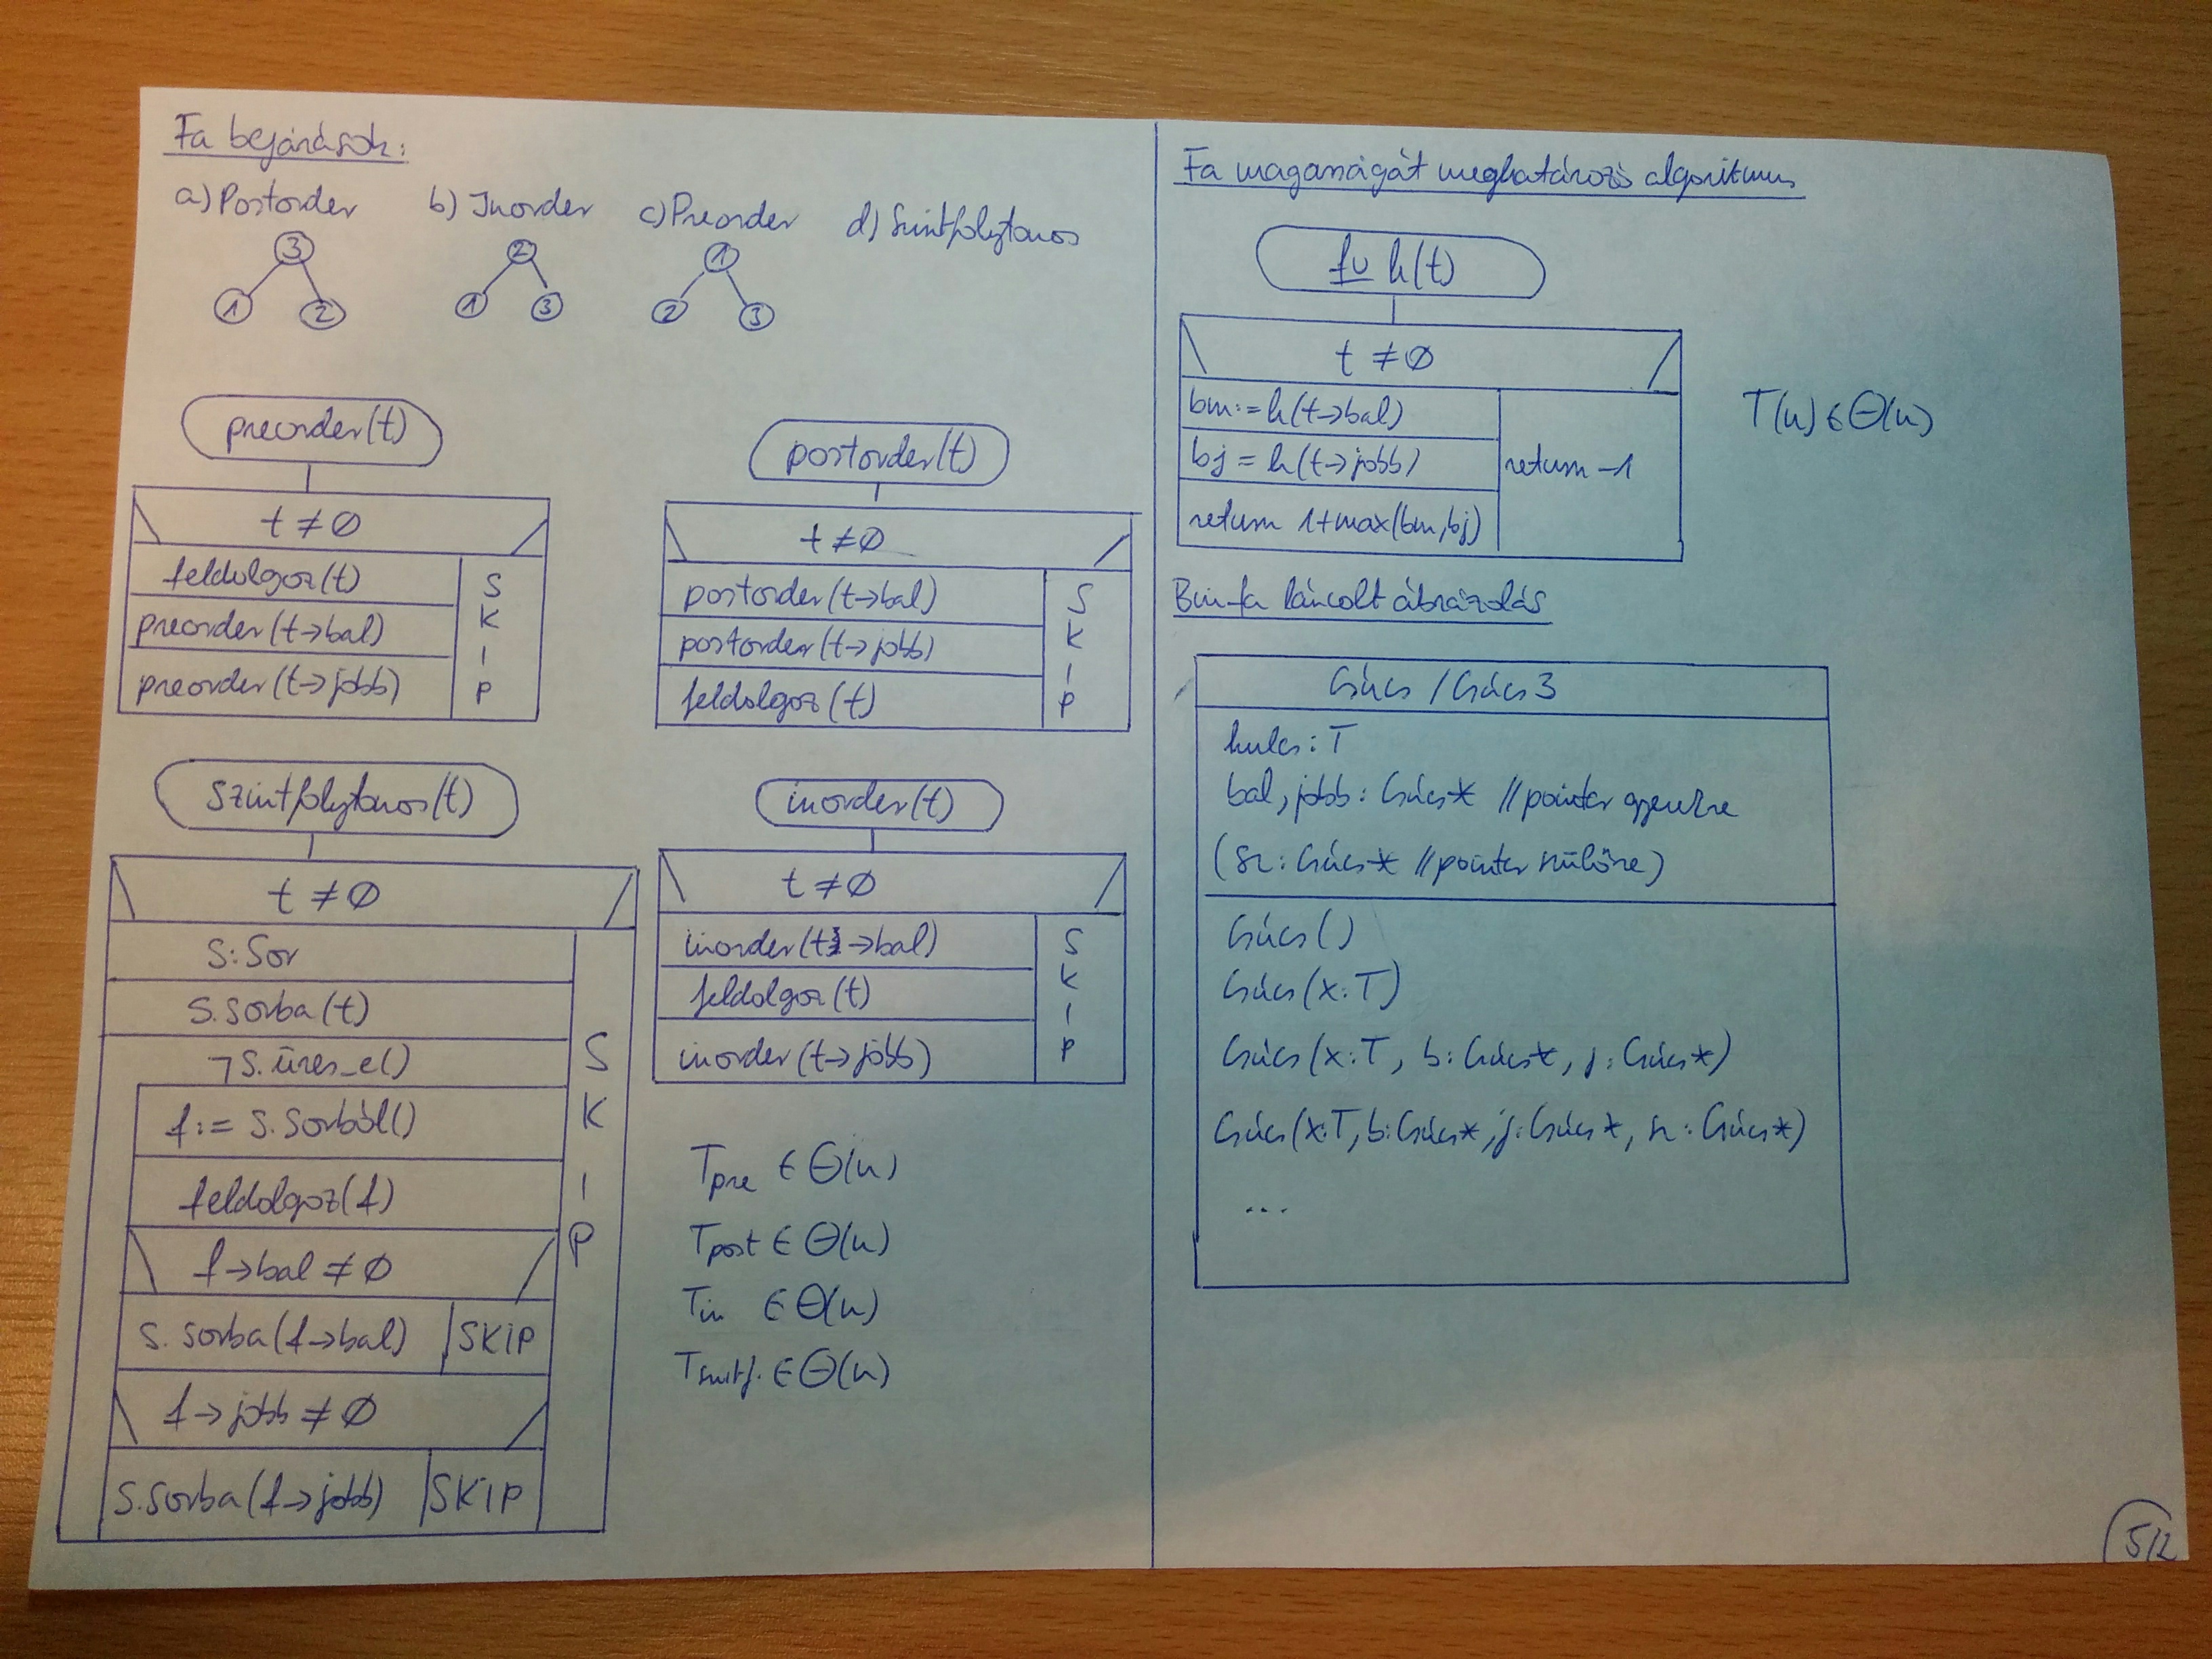 Fa bejárások:
a) Postorder b) Inorder c) Preorder d) Szintfolytonos
3
1 2
2
1 3
1
2 3
preorder(t)
t ≠ ∅
feldolgoz(t)
preorder(t→bal)
preorder(t→jobb)
SKIP
postorder(t)
t ≠ ∅
postorder(t→bal)
postorder(t→jobb)
feldolgoz(t)
SKIP
Szintfolytonos(t)
t ≠ ∅
S:Sor
S.sorba(t)
¬S.üres_e()
f := S.Sorból()
feldolgoz(f)
f→bal ≠ ∅
S.sorba(f→bal) SKIP
f→jobb ≠ ∅
S.sorba(f→jobb) SKIP
SKIP
inorder(t)
t ≠ ∅
inorder(t→bal)
feldolgoz(t)
inorder(t→jobb)
SKIP
Tpre ∈ Θ(n)
Tpost ∈ Θ(n)
Tin ∈ Θ(n)
Tszintf. ∈ Θ(n)
Fa magasságát meghatározó algoritmus
fv h(t)
t ≠ ∅
bm := h(t→bal)
bj = h(t→jobb)
return 1+max(bm,bj)
return -1
T(n) ∈ Θ(n)
Bin-fa láncolt ábrázolás
Csúcs / Csúcs3
kulcs: T
bal, jobb: Csúcs* // pointer gyerekre
(sz: Csúcs* // pointer szülőre)
Csúcs()
Csúcs(x:T)
Csúcs(x:T, b:Csúcs*, j:Csúcs*)
Csúcs(x:T, b:Csúcs*, j:Csúcs*, sz:Csúcs*)
...
5/2